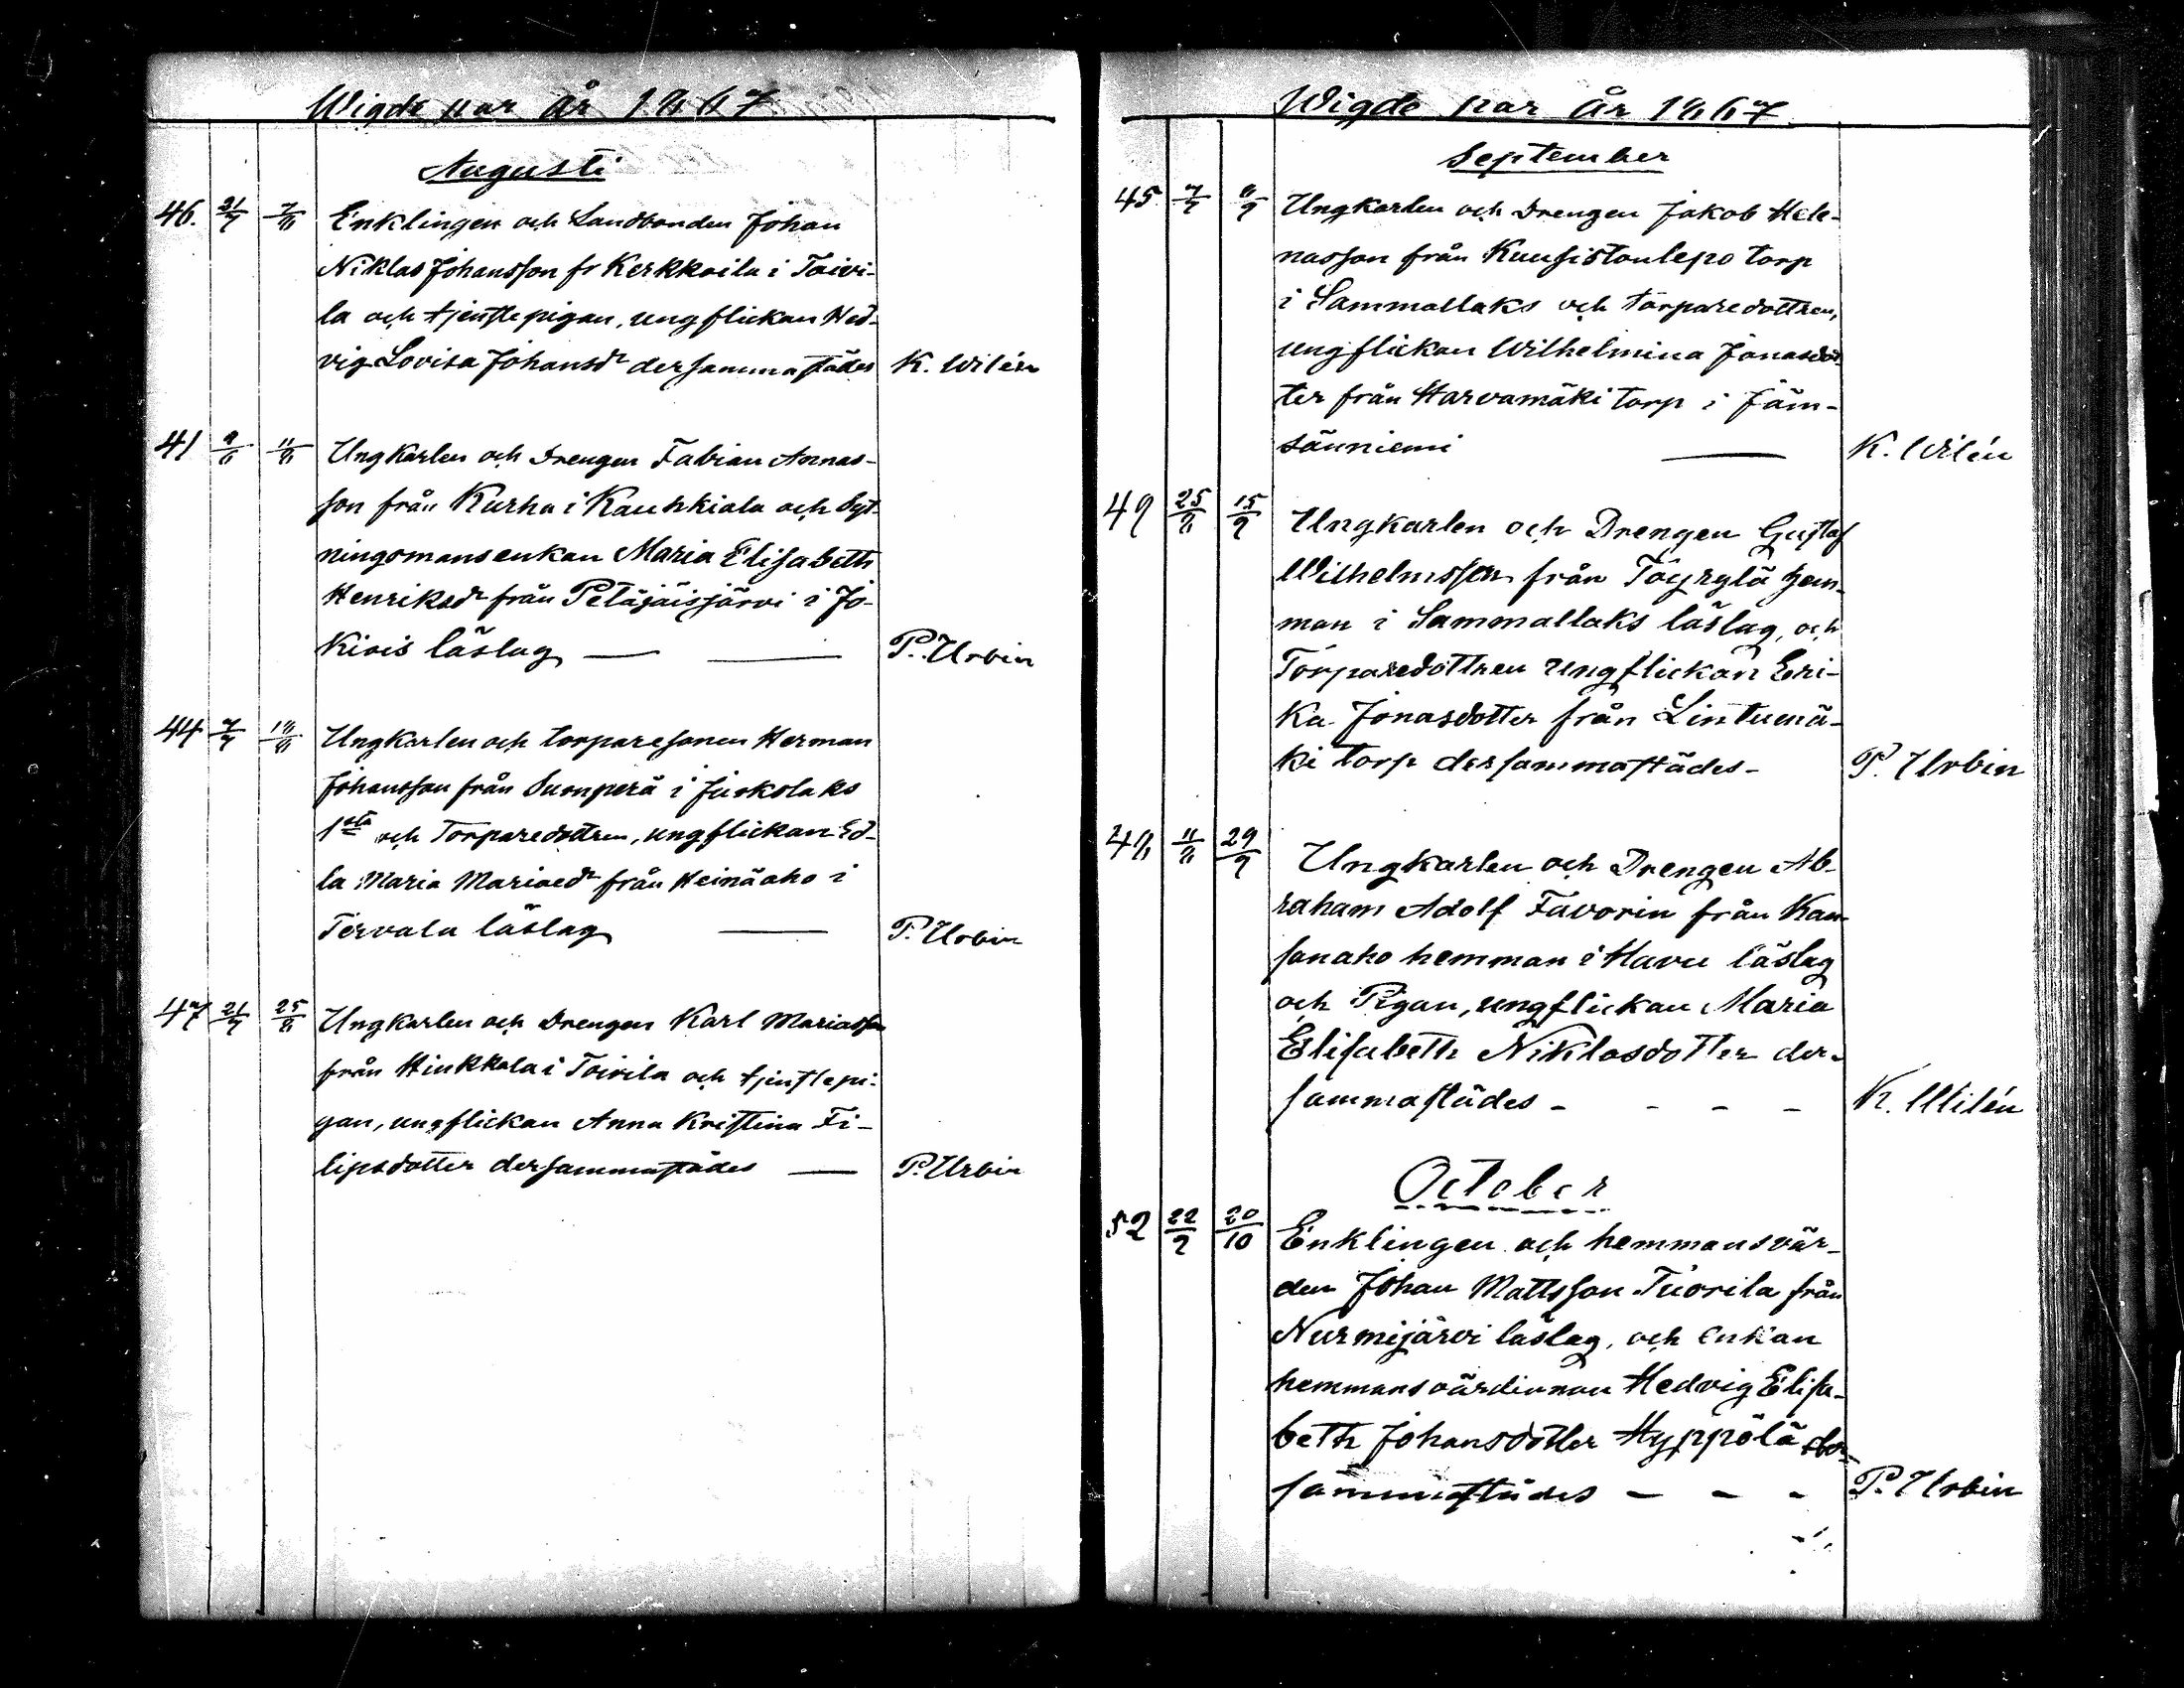 Wigde par år 1867
Augusti
46. 21/7 7/8 Enklingen och Landbonden Johan
Niklas Johansson fr Kerkkoila i Toivi-
la och tjenstepigan, ungflickan Hed-
vig Lovisa Johansdr dersammastädes K. Wilén
41 4/8 11/8 Ungkarlen och Drengen Fabian Annas-
son från Kurha i Kauhkiala och Syt-
ningsmansenkan Maria Elisabeth
Henriksdr från Petäjäisjärvi i Jo-
kiois läslag — — P. Urbin
44 7/7 18/8 Ungkarlen och torparesonen Herman
Johansson från Sumperä i Juokslaks
1sta och Torparedottren, ungflickan Ed-
la Maria Mariaedr från Heinäaho i
Tervala läslag — P. Urbin
47 21/7 25/8 Ungkarlen och Drengen Karl Mariasson
från Hinkkala i Toivila och tjenstepi-
gan, ungflickan Anna Kristina Fi-
lipsdotter dersammastädes — P. Urbin
Wigde par år 1867
September
45 7/7 8/9 Ungkarlen och Drengen Jakob Hele-
nasson från Kuusistonlepo torp
i Sammallaks och torparedottren,
ungflickan Wilhelmina Jonasdot-
ter från Harvamäki torp i Jäm-
säniemi — K. Wilén
49 25/8 15/9 Ungkarlen och Drengen Gustaf
Wilhelmsson från Töyrylä hem-
man i Sammallaks läslag, och
Torparedottren ungflickan Eri-
ka Jonasdotter från Lintumä-
ki torp dersammastädes - P. Urbin
48 11/8 29/9 Ungkarlen och Drengen Ab-
raham Adolf Favorin från Kan-
sanaho hemman i Havu läslag
och Pigan, ungflickan Maria
Elisabeth Niklasdotter der-
sammastädes - - - - K. Wilén
October
52 22/9 20/10 Enklingen och hemmansvär-
den Johan Mattsson Tuorila från
Nurmijärvi läslag, och enkan
hemmansvärdinnan Hedvig Elisa-
beth Johansdotter Hyppölä der-
sammastädes - - - P. Urbin